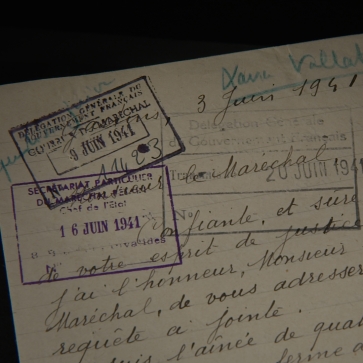 Xavier Vallat
3 Juin 1941
DÉLÉGATION GÉNÉRALE DU
GOUVERNEMENT FRANÇAIS
CABINET DU MARÉCHAL
9 JUIN 1941
Délégation Générale
du Gouvernement Français
20 JUIN 1941
le Maréchal
SECRÉTARIAT PARTICULIER
DU MARÉCHAL PÉTAIN
Chef de l'État
16 JUIN 1941
Invalides
No
Confiante, et sûre
de votre esprit de justice
j'ai l'honneur, Monsieur
Maréchal, de vous adresser
requête ci jointe.
l'aînée de